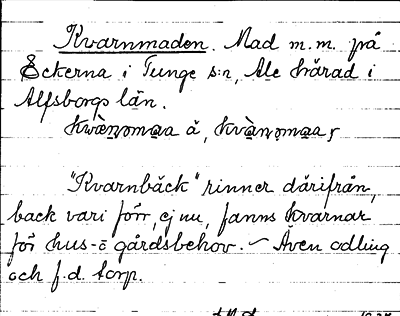 Kvarnmaden. Mad m.m. på
Eckerna i Tunge s:n, Ale härad i
Älfsborgs län.
"Kvarnbäck" rinner därifrån,
back vari förr, ej nu, fanns kvarnar
för hus- o gårdsbehov. – Även odling
och f.d. torp.